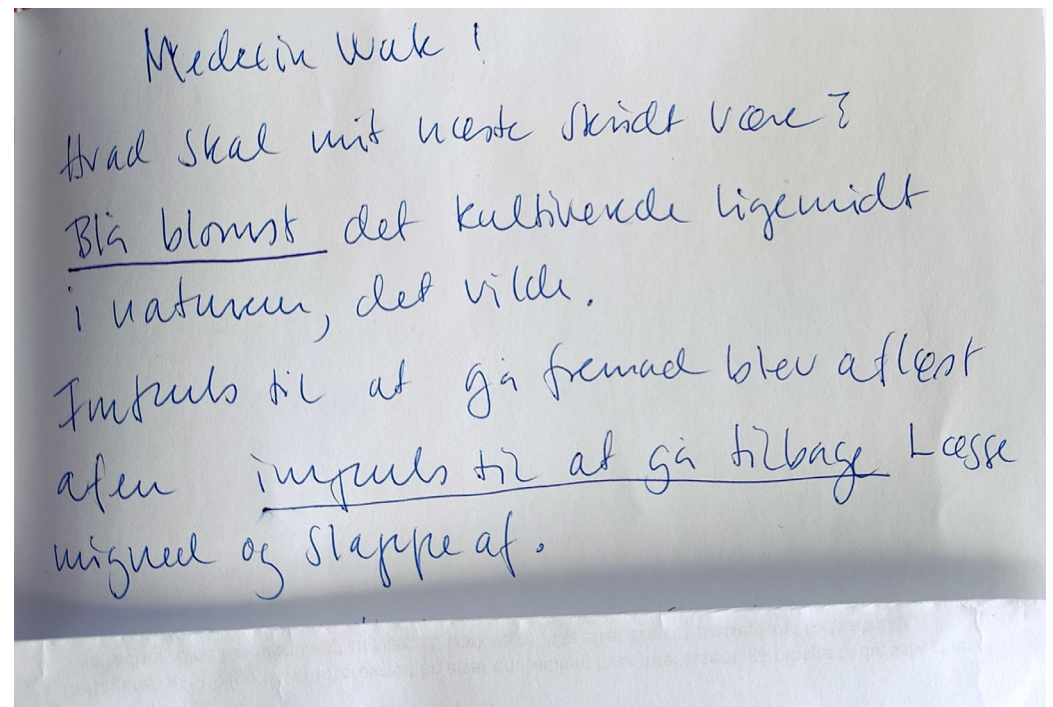 Medecin Walk!
Hvad skal mit næste skridt være?
Blå blomst det kultiverede ligemidt
i naturen, det vilde.
Impuls til at gå fremad blev aflæst
afen impuls til at gå tilbage Læsse
migned og slappe af.